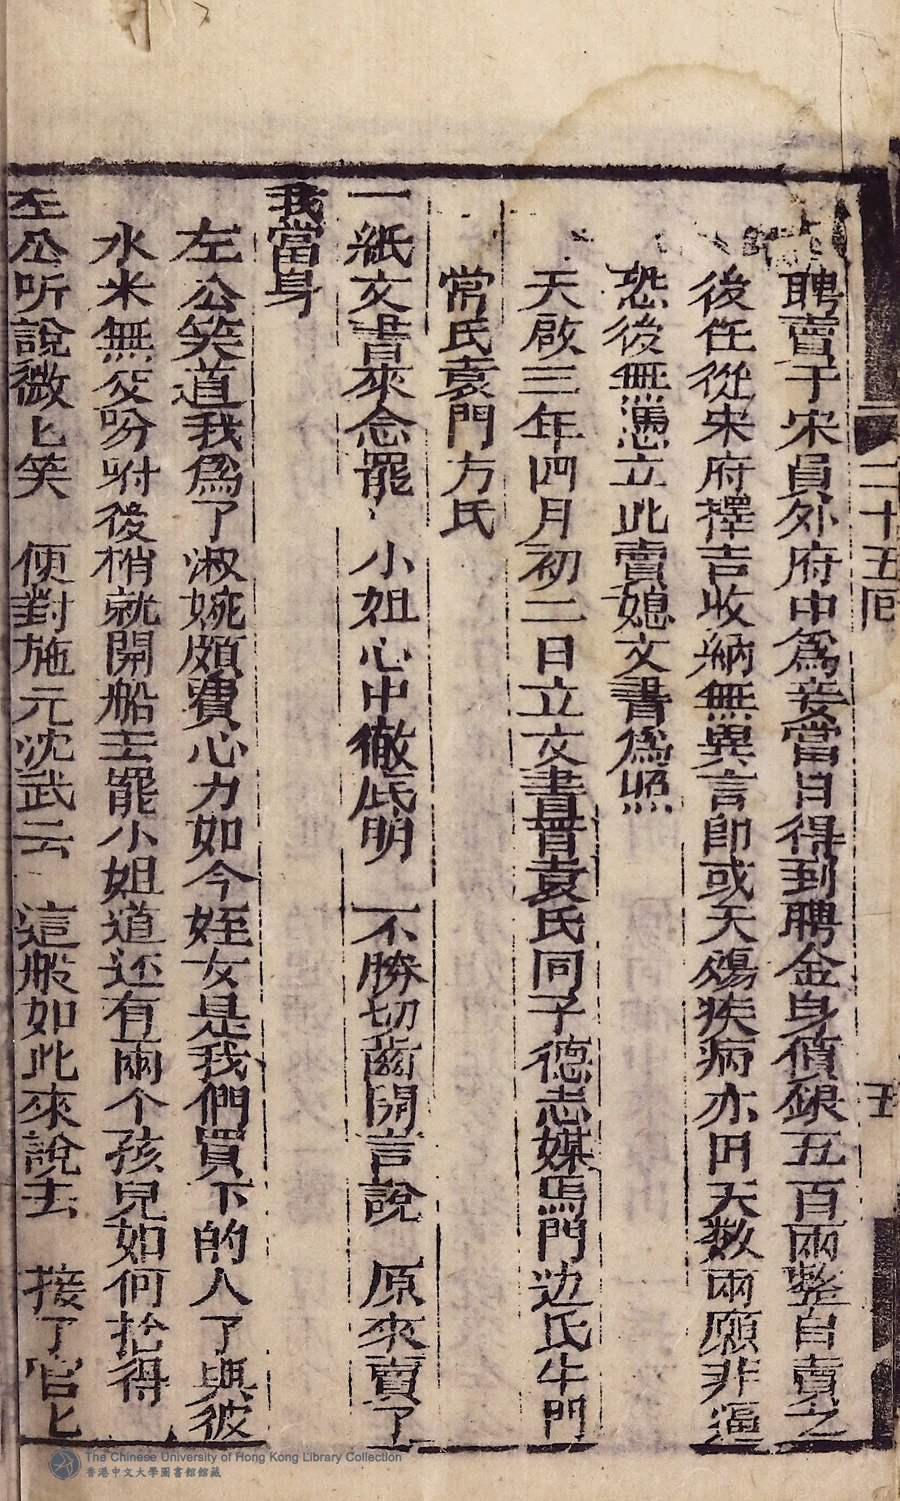 二十五回
五
聘賣于宋員外府中為妾當日得到聘金身價銀五百兩整自賣之
後任從宋府擇吉收納無異言即或天殤疾病亦由天数兩願非逼
恐後無慿立此賣媳文書為照
天啟三年四月初二日立文書晋袁氏同子德志媒馮門边氏牛門
常氏袁門方氏
一紙文書來念罷 小姐心中徹底明 不勝切齒開言說 原來賣了
我當身
左公笑道我為了淑婉頗費心力如今姪女是我們買下的人了與彼
水米無交吩咐後梢就開船去罷小姐道还有兩个孩兒如何捨得
左公听說微匕笑 便對施元沈武云 這般如此來說去 接了官匕
The Chinese University of Hong Kong Library Collection
香港中文大學圖書館館藏